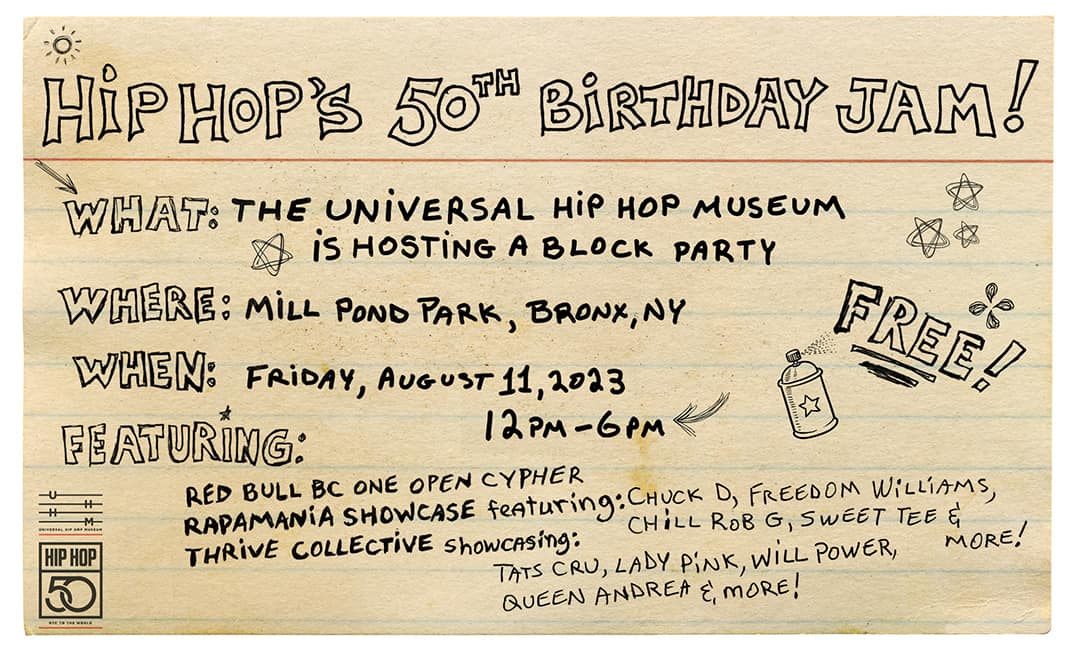 HiP HOP'S 50TH BiRTHDAY JAM!
WHAT: THE UNIVERSAL HiP HOP MUSEUM
iS HOSTING A BLOCK PARTY
WHERE: MiLL POND PARK, BRONX, NY
WHEN: FRiDAY, AUGUST 11, 2023
12PM-6PM
FREE!
FEATURING:
RED BULL BC ONE OPEN CYPHER
RAPAMANiA SHOWCASE featuring: CHUCK D, FREEDOM WiLLiAMS,
CHiLL ROB G, SWEET TEE &
MORE!
THRiVE COLLECTiVE showcasing:
TATS CRU, LADY PiNK, WiLL POWER,
QUEEN ANDREA & MORE!
U H
H M
UNIVERSAL HIP HOP MUSEUM
HIP HOP
50
NYC TO THE WORLD